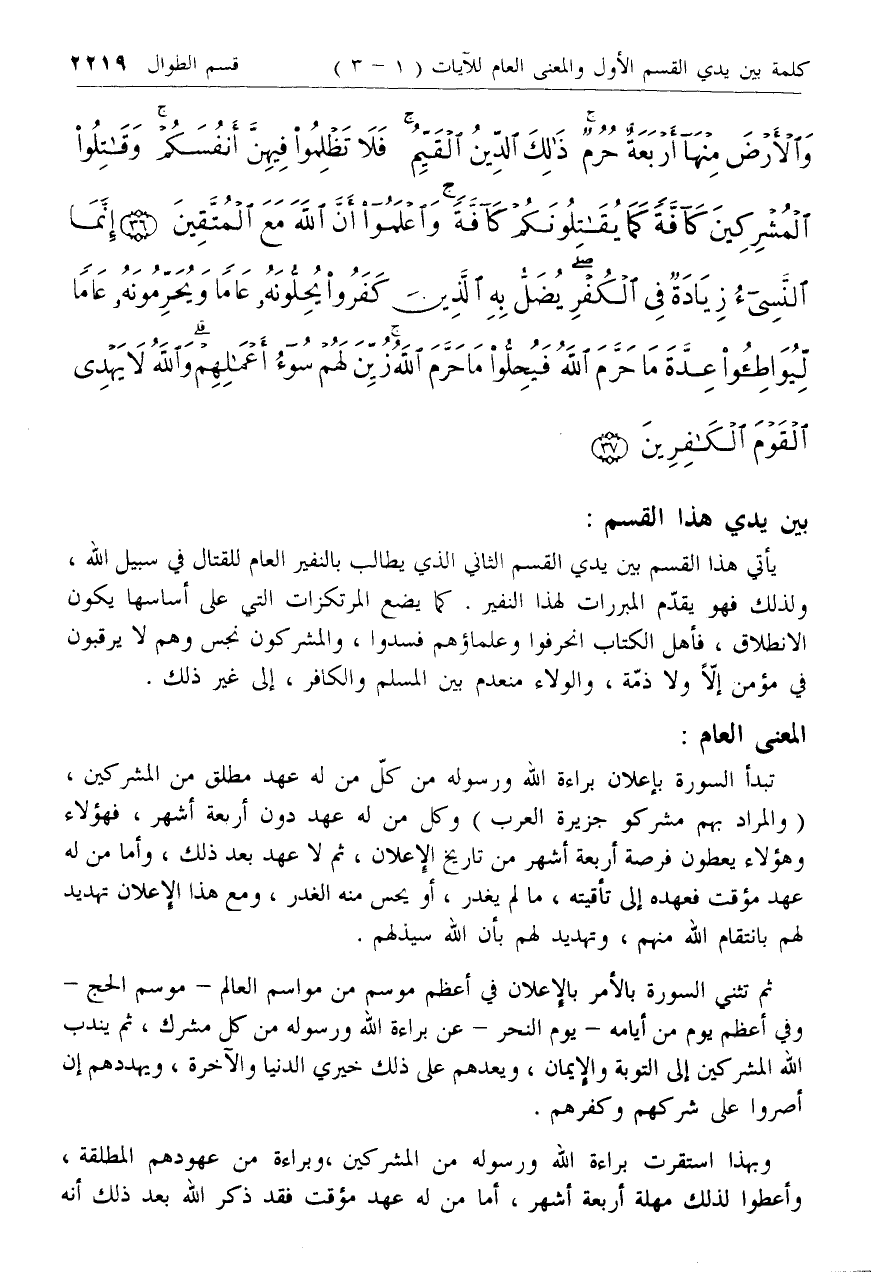 كلمة بين يدي القسم الأول والمعنى العام للآيات ( ١ - ٣ ) قسم الطوال ٢٢١٩
وَٱلْأَرْضَ مِنْهَآ أَرْبَعَةٌ حُرُمٌ ۚ ذَٰلِكَ ٱلدِّينُ ٱلْقَيِّمُ ۚ فَلَا تَظْلِمُوا۟ فِيهِنَّ أَنفُسَكُمْ ۚ وَقَٰتِلُوا۟
ٱلْمُشْرِكِينَ كَآفَّةً كَمَا يُقَٰتِلُونَكُمْ كَآفَّةً ۚ وَٱعْلَمُوٓا۟ أَنَّ ٱللَّهَ مَعَ ٱلْمُتَّقِينَ ٣٦ إِنَّمَا
ٱلنَّسِىٓءُ زِيَادَةٌ فِى ٱلْكُفْرِ ۖ يُضَلُّ بِهِ ٱلَّذِينَ كَفَرُوا۟ يُحِلُّونَهُۥ عَامًا وَيُحَرِّمُونَهُۥ عَامًا
لِّيُوَاطِـُٔوا۟ عِدَّةَ مَا حَرَّمَ ٱللَّهُ فَيُحِلُّوا۟ مَا حَرَّمَ ٱللَّهُ ۚ زُيِّنَ لَهُمْ سُوٓءُ أَعْمَٰلِهِمْ ۗ وَٱللَّهُ لَا يَهْدِى
ٱلْقَوْمَ ٱلْكَٰفِرِينَ ٣٧
بين يدي هذا القسم :
يأتي هذا القسم بين يدي القسم الثاني الذي يطالب بالنفير العام للقتال في سبيل الله ،
ولذلك فهو يقدّم المبررات لهذا النفير . كما يضع المرتكزات التي على أساسها يكون
الانطلاق ، فأهل الكتاب انحرفوا وعلماؤهم فسدوا ، والمشركون نجس وهم لا يرقبون
في مؤمن إلّاً ولا ذمّة ، والولاء منعدم بين المسلم والكافر ، إلى غير ذلك .
المعنى العام :
تبدأ السورة بإعلان براءة الله ورسوله من كلّ من له عهد مطلق من المشركين ،
( والمراد بهم مشركو جزيرة العرب ) وكل من له عهد دون أربعة أشهر ، فهؤلاء
وهؤلاء يعطون فرصة أربعة أشهر من تاريخ الإعلان ، ثم لا عهد بعد ذلك ، وأما من له
عهد مؤقت فعهده إلى تأقيته ، ما لم يغدر ، أو يحس منه الغدر ، ومع هذا الإعلان تهديد
لهم بانتقام الله منهم ، وتهديد لهم بأن الله سيذلهم .
ثم تثني السورة بالأمر بالإعلان في أعظم موسم من مواسم العالم – موسم الحج –
وفي أعظم يوم من أيامه – يوم النحر – عن براءة الله ورسوله من كل مشرك ، ثم يندب
الله المشركين إلى التوبة والإيمان ، ويعدهم على ذلك خيري الدنيا والآخرة ، ويهددهم إن
أصروا على شركهم وكفرهم .
وبهذا استقرت براءة الله ورسوله من المشركين ،وبراءة من عهودهم المطلقة ،
وأعطوا لذلك مهلة أربعة أشهر ، أما من له عهد مؤقت فقد ذكر الله بعد ذلك أنه